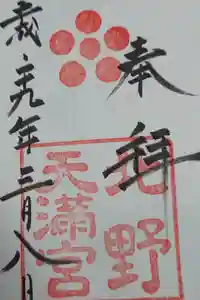 奉拝
北野
天満宮
九年三月八日